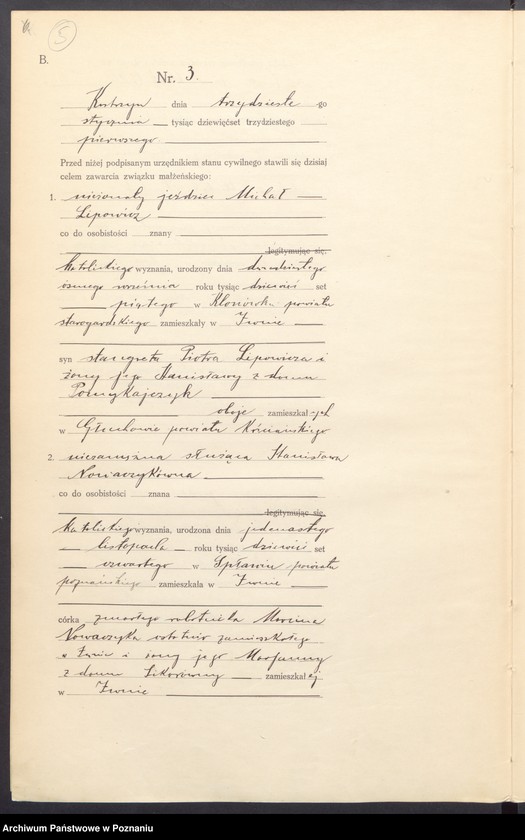 5
B.
Nr. 3.
Kostrzyn dnia trzydzieste go
stycznia tysiąc dziewięćset trzydziestego
pierwszego
Przed niżej podpisanym urzędnikiem stanu cywilnego stawili się dzisiaj
celem zawarcia związku małżeńskiego:
1. nieżonaty jeździec Michał
Lepowicz
co do osobistości znany
legitymując się,
katolickiego wyznania, urodzony dnia dwudziestego
ósmego września roku tysiąc dziewięć set
piątego w Klonówka powiatu
starogardzkiego zamieszkały w Iwnie
syn stangreta Piotra Lepowicza i
żony jego Stanisławy z domu
Pomykajczyk
oboje zamieszkałych
w Głuchowie powiatu Kościańskiego
2. niezamężna służąca Stanisława
Nowaczykówna
co do osobistości znana
legitymując się,
katolickiego wyznania, urodzona dnia jedenastego
listopada roku tysiąc dziewięć set
czwartego w Spławiu powiatu
poznańskiego zamieszkała w Iwnie
córka zmarłego robotnika Marcina
Nowaczyka ostatnio zamieszkałego
w Iwnie i żony jego Marjanny
z domu Sikorówny zamieszkałej
w Iwnie
Archiwum Państwowe w Poznaniu